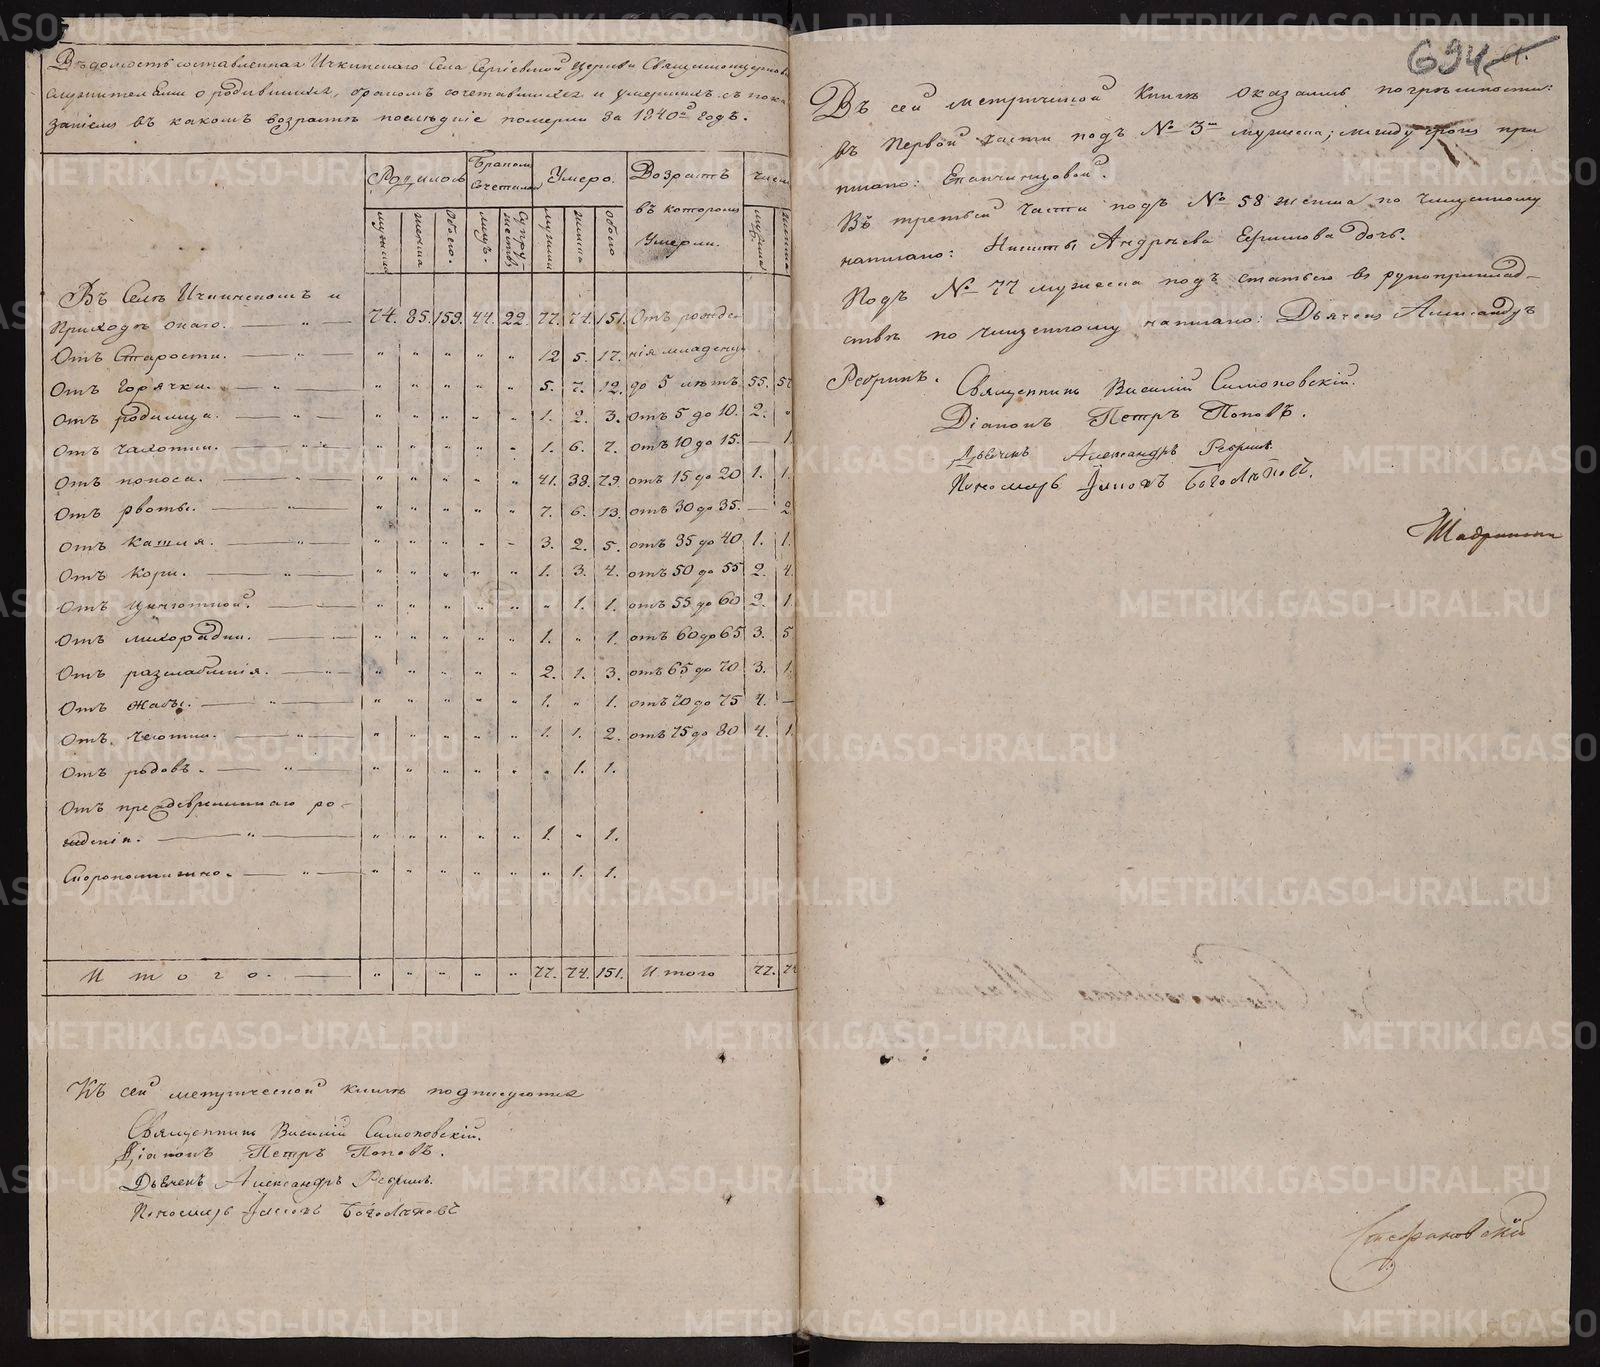 Вѣдомость составленная Ичкинскаго Села Сергіевской Церкви Священноцерковно
служителями о родившихся, бракомъ сочетавшихся и умершихъ съ пока
заніемъ въ какомъ возрастѣ послѣдніе померли за 1840й Годъ.
Родилось Бракомъ Сочеталось Умерло. Возрастъ въ которомъ Умерли. Число
мужеска женска Обоего. мужъ. Супружествъ мужеска женска обоего мужеска женска
Въ Селѣ Ичкинскомъ и
Приходѣ онаго. — „ — 74. 85. 159. 44. 22. 77. 74. 151. Отъ рожде-
Отъ Старости. — „ „ „ „ „ „ 12 5. 17. нія младенцы
Отъ Горячки. — „ — „ „ „ „ „ 5. 7. 12. до 5 лѣтъ 55. 57
Отъ родимца. — „ — „ „ „ „ „ 1. 2. 3. отъ 5 до 10. 2. „
Отъ чахотки. — „ — „ „ „ „ „ 1. 6. 7. отъ 10 до 15. — 1.
Отъ поноса. — „ — „ „ „ „ „ 41. 38. 79. отъ 15 до 20 1. 1.
Отъ рвоты. — „ — „ „ „ „ „ 7. 6. 13. отъ 30 до 35. — 2
Отъ Кашля. — „ — „ „ „ „ „ 3. 2. 5. отъ 35 до 40 1. 1.
Отъ Кори. — „ — „ „ „ „ „ 1. 3. 4. отъ 50 до 55 2. 4.
Отъ цынготной. — „ — „ „ „ „ „ „ 1. 1. отъ 55 до 60 2. 1.
Отъ лихорадки. — „ — „ „ „ „ „ 1. „ 1. отъ 60 до 65 3. 5
Отъ разслабленія. — „ — „ „ „ „ „ 2. 1. 3. отъ 65 до 70 3. 1.
Отъ Жабы. — „ — „ „ „ „ „ 1. „ 1. отъ 70 до 75 4. —
Отъ — „ — „ „ „ „ „ 1. 1. 2. отъ 75 до 80 4. 1.
Отъ родовъ. — „ — „ „ „ „ „ „ 1. 1.
Отъ преждевременнаго ро-
жденія. — „ — „ „ „ „ „ 1. „ 1.
Скоропостижно. — „ — „ „ „ „ „ „ 1. 1.
Итого. — „ „ „ „ „ 77. 74. 151. Итого 77. 74
Къ сей метрической книгѣ подписуются
Священникъ Василій Симоновскій.
Діаконъ Петръ Поповъ.
Дьячекъ Александръ Ребринъ.
Пономарь Боголѣповъ
694
Въ сей метрической Книгѣ оказались погрѣшности:
въ Первой части подъ № 3м мужеска; между строкъ при
писано: Епанчинцовой.
Въ третьей части подъ № 58 женска по чищенному
написано: Никиты Андрѣева Ершова дочь.
Подъ № 77 мужеска подъ статьею въ рукоприклад-
ствѣ по чищенному написано: Дьячекъ Александръ
Ребринъ.
Священникъ Василій Симоновскій.
Діаконъ Петръ Поповъ.
Дьячекъ Александръ Ребринъ.
Пономарь Боголѣповъ.
Шадринска
Стефановскій
METRIKI.GASO-URAL.RU